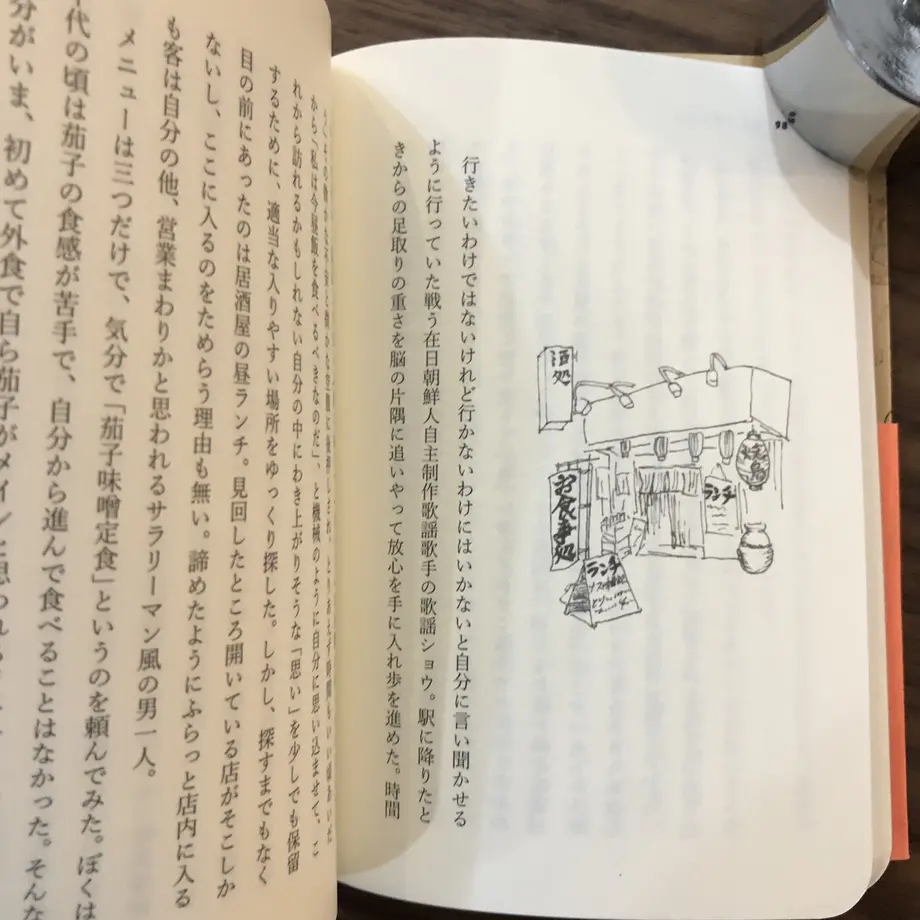 焼鳥
ランチ
酒処
お食事処
ランチ
行きたいわけではないけれど行かないわけにはいかないと自分に言い聞かせる
ように行っていた戦う在日朝鮮人自主制作歌謡歌手の歌謡ショウ。駅に降りたと
きからの足取りの重さを脳の片隅に追いやって放心を手に入れ歩を進めた。時間
に後押しされ、とりあえず時間もいい頃あいだ
から「私は今昼飯を食べるべきなのだ」、と機械のように自分に思い込ませて、こ
れから訪れるかもしれない自分の中にわき上がりそうな「思い」を少しでも保留
するために、適当な入りやすい場所をゆっくり探した。しかし、探すまでもなく
目の前にあったのは居酒屋の昼ランチ。見回したところ開いている店がそこしか
ないし、ここに入るのをためらう理由も無い。諦めたようにふらっと店内に入る
も客は自分の他、営業まわりかと思われるサラリーマン風の男一人。
メニューは三つだけで、気分で「茄子味噌定食」というのを頼んでみた。ぼくは
代の頃は茄子の食感が苦手で、自分から進んで食べることはなかった。そんな
分がいま、初めて外食で自ら茄子がメインと思われ